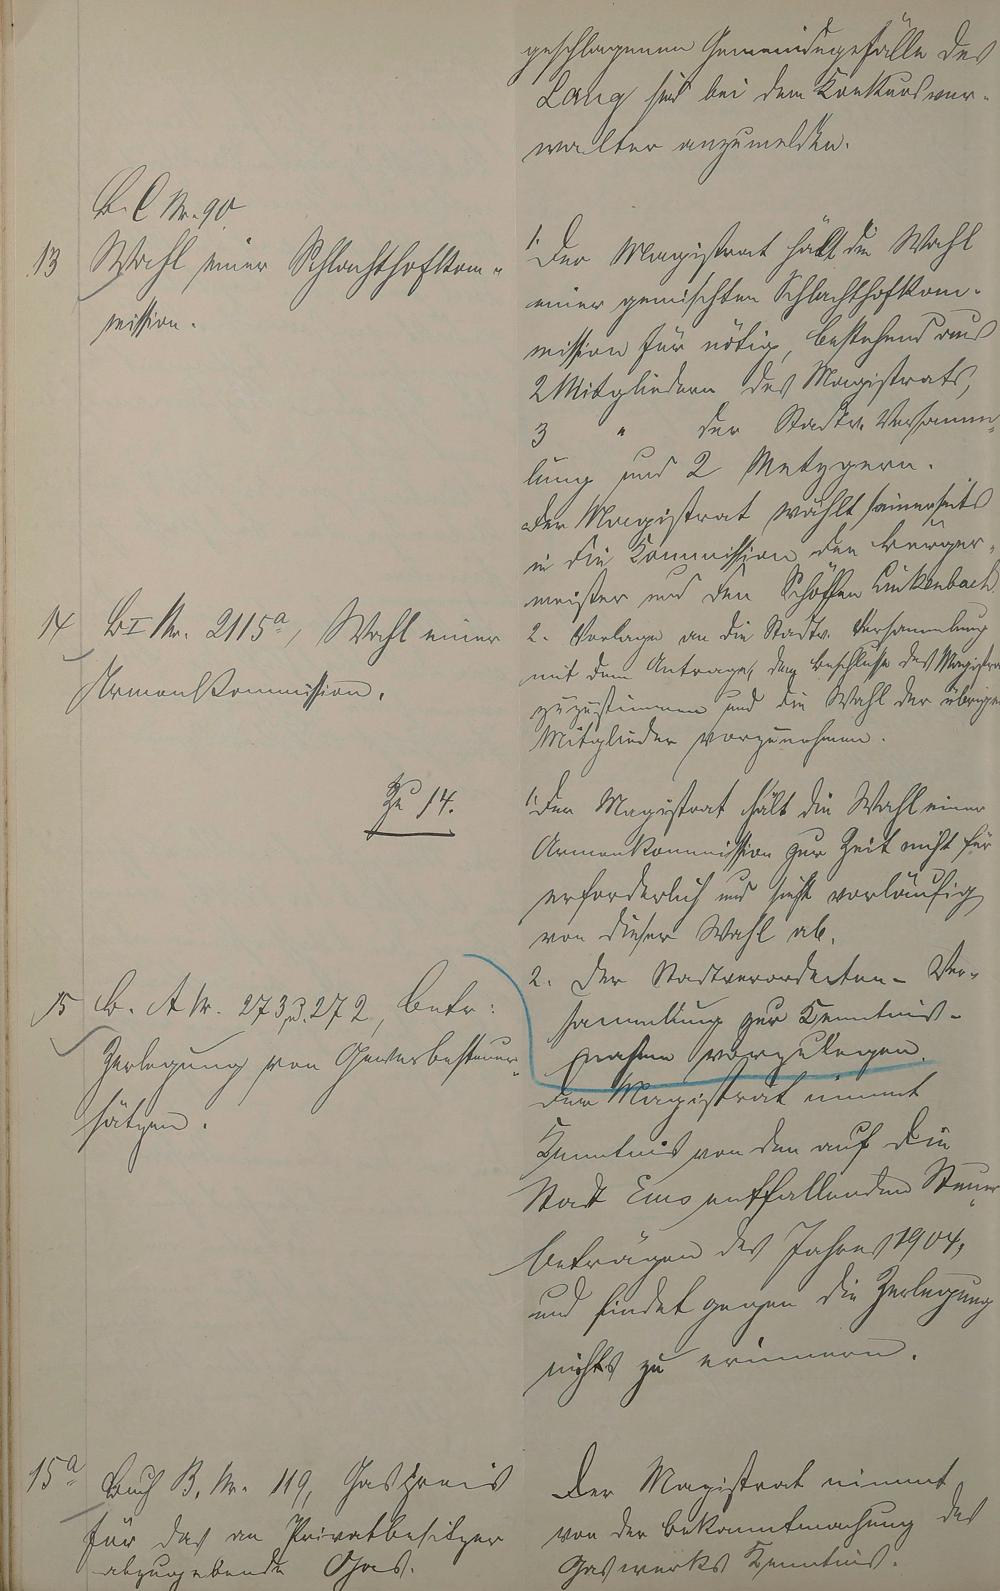 geschlagenen Gemeindegefälle des
Lang sind bei dem Konkursver-
walter anzumelden.
B. C Nr. 90
13 Wahl einer Schlachthofkom-
mission.
1. Der Magistrat hält die Wahl
einer gemischten Schlachthofkom-
mission für nötig, bestehend aus
2 Mitgliedern des Magistrats,
3 " der Stadtv. Versamm-
lung und 2 Metzgern.
Der Magistrat wählt seinerseits
in die Kommission den Bürger-
meister und den Schöffen Linkenbach
2. Vorlage an die Stadtv. Versammlung
mit dem Antrage, dem Beschlusse des Magistra
zuzustimmen und die Wahl der übrigen
Mitglieder vorzunehmen.
14 B I Nr. 2115a, Wahl einer
Armenkommission.
Zu 14.
1. Der Magistrat hält die Wahl einer
Armenkommission zur Zeit nicht für
erforderlich und sieht vorläufig
von dieser Wahl ab.
2. Der Stadtverordneten-Ver-
sammlung zur Kenntnis-
nahme vorzulegen.
15 B. A Nr. 273 u. 272, betr:
Zerlegung von Gewerbesteuer-
sätzen.
Der Magistrat nimmt
Kenntnis von den auf die
Stadt Ems entfallenden Steuer-
beträgen des Jahres 1904,
und findet gegen die Zerlegung
nichts zu erinnern.
15a Buch B. Nr. 119, Gaspreis
für das an Privatbesitzer
abzugebende Gas.
Der Magistrat nimmt
von der Bekanntmachung des
Gaswerks Kenntnis.